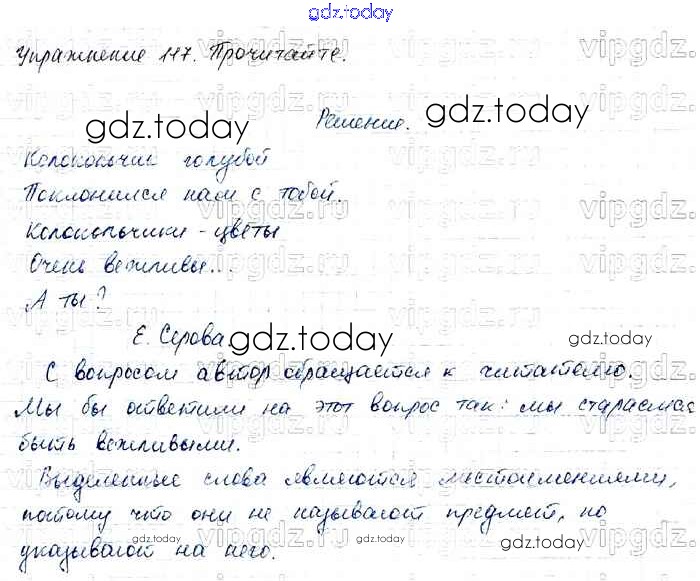 gdz.today
Упражнение 117. Прочитайте.
Решение.
gdz.today
gdz.today
Колокольчик голубой
Поклонился нам с тобой.
Колокольчики - цветы
Очень вежливы...
А ты?
Е. Серова.
gdz.today
gdz.today
С вопросом автор обращается к читателю.
Мы бы ответили на этот вопрос так: мы стараемся
быть вежливыми.
gdz.today
gdz.today
Выделенные слова являются местоимениями,
потому что они не называют предмет, но
указывают на него.
gdz.today
gdz.today
vipgdz.ru